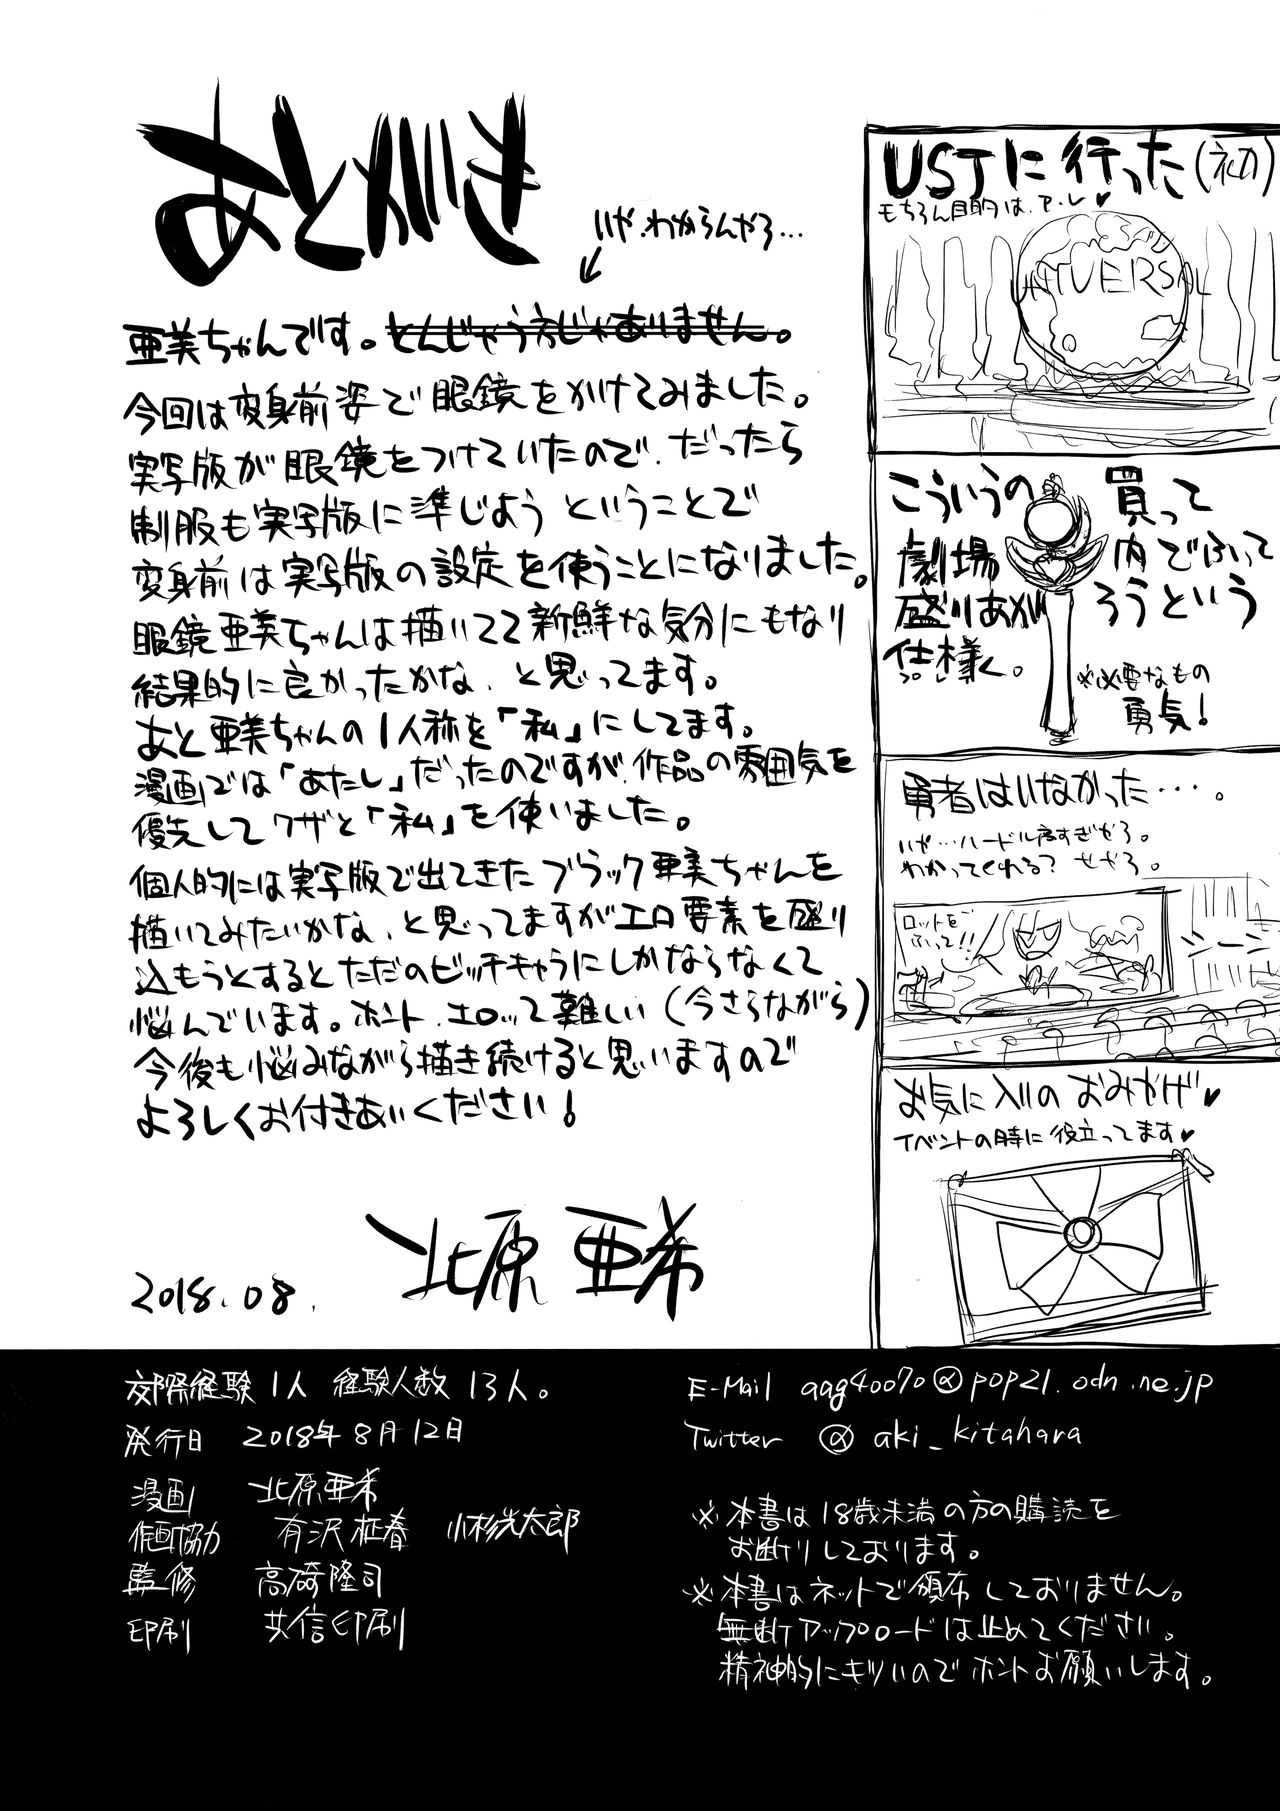 あとがき
いや.わからんやろ…
亜美ちゃんです。とんじゃうえじゃありません。
今回は変身前姿で眼鏡をかけてみました。
実写版が眼鏡をつけていたので.だったら
制服も実写版に準じようということで
変身前は実写版の設定を使うことになりました。
眼鏡亜美ちゃんは描いてて新鮮な気分にもなり
結果的に良かったかな.と思ってます。
あと亜美ちゃんの1人称を「私」にしてます。
漫画では「あたし」だったのですが.作品の雰囲気を
優先してワザと「私」を使いました。
個人的には実写版で出てきたブラック亜美ちゃんを
描いてみたいかな.と思ってますがエロ要素を盛り
込もうとするとただのビッチキャラにしかならなくて
悩んでいます。ホント.エロって難しい(今さらながら)
今後も悩みながら描き続けると思いますので
よろしくお付きあいください!
2018.08.
北原亜希
USJに行った(初)
もちろん目的は.ア・レ♥
UNIVERSAL
こういうの買って
劇場内でふって
盛りあがろうという
仕様く。
※必要なもの
勇気!
勇者はいなかった・・・。
いや…ハードル高すぎやろ。
わかってくれる?せやろ。
ロットを
ふって!!
お気に入りのおみやげ♥
イベントの時に役立ってます♥
交際経験1人 経験人数13人。
発行日 2018年8月12日
漫画 北原亜希
作画協力 有沢柾春 小杉光太郎
監修 高崎隆司
印刷 共信印刷
E-Mail aag40070@pop21.odn.ne.jp
Twitter @aki_kitahara
※本書は18歳未満の方の購読を
お断りしております。
※本書はネットで頒布しておりません。
無断アップロードは止めてください。
精神的にキツいのでホントお願いします。